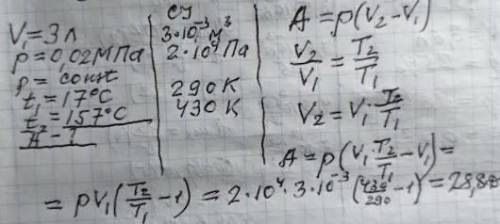 V₁=3л
p=0,02МПа
p=const
t₁=17°C
t₂=157°C
A-?
СИ
3·10⁻³м³
2·10⁴Па
290K
430K
A=p(V₂-V₁)
V₂/V₁=T₂/T₁
V₂=V₁·T₂/T₁
A=p(V₁T₂/T₁-V₁)=
=pV₁(T₂/T₁-1)=2·10⁴·3·10⁻³(430/290-1)=28,8